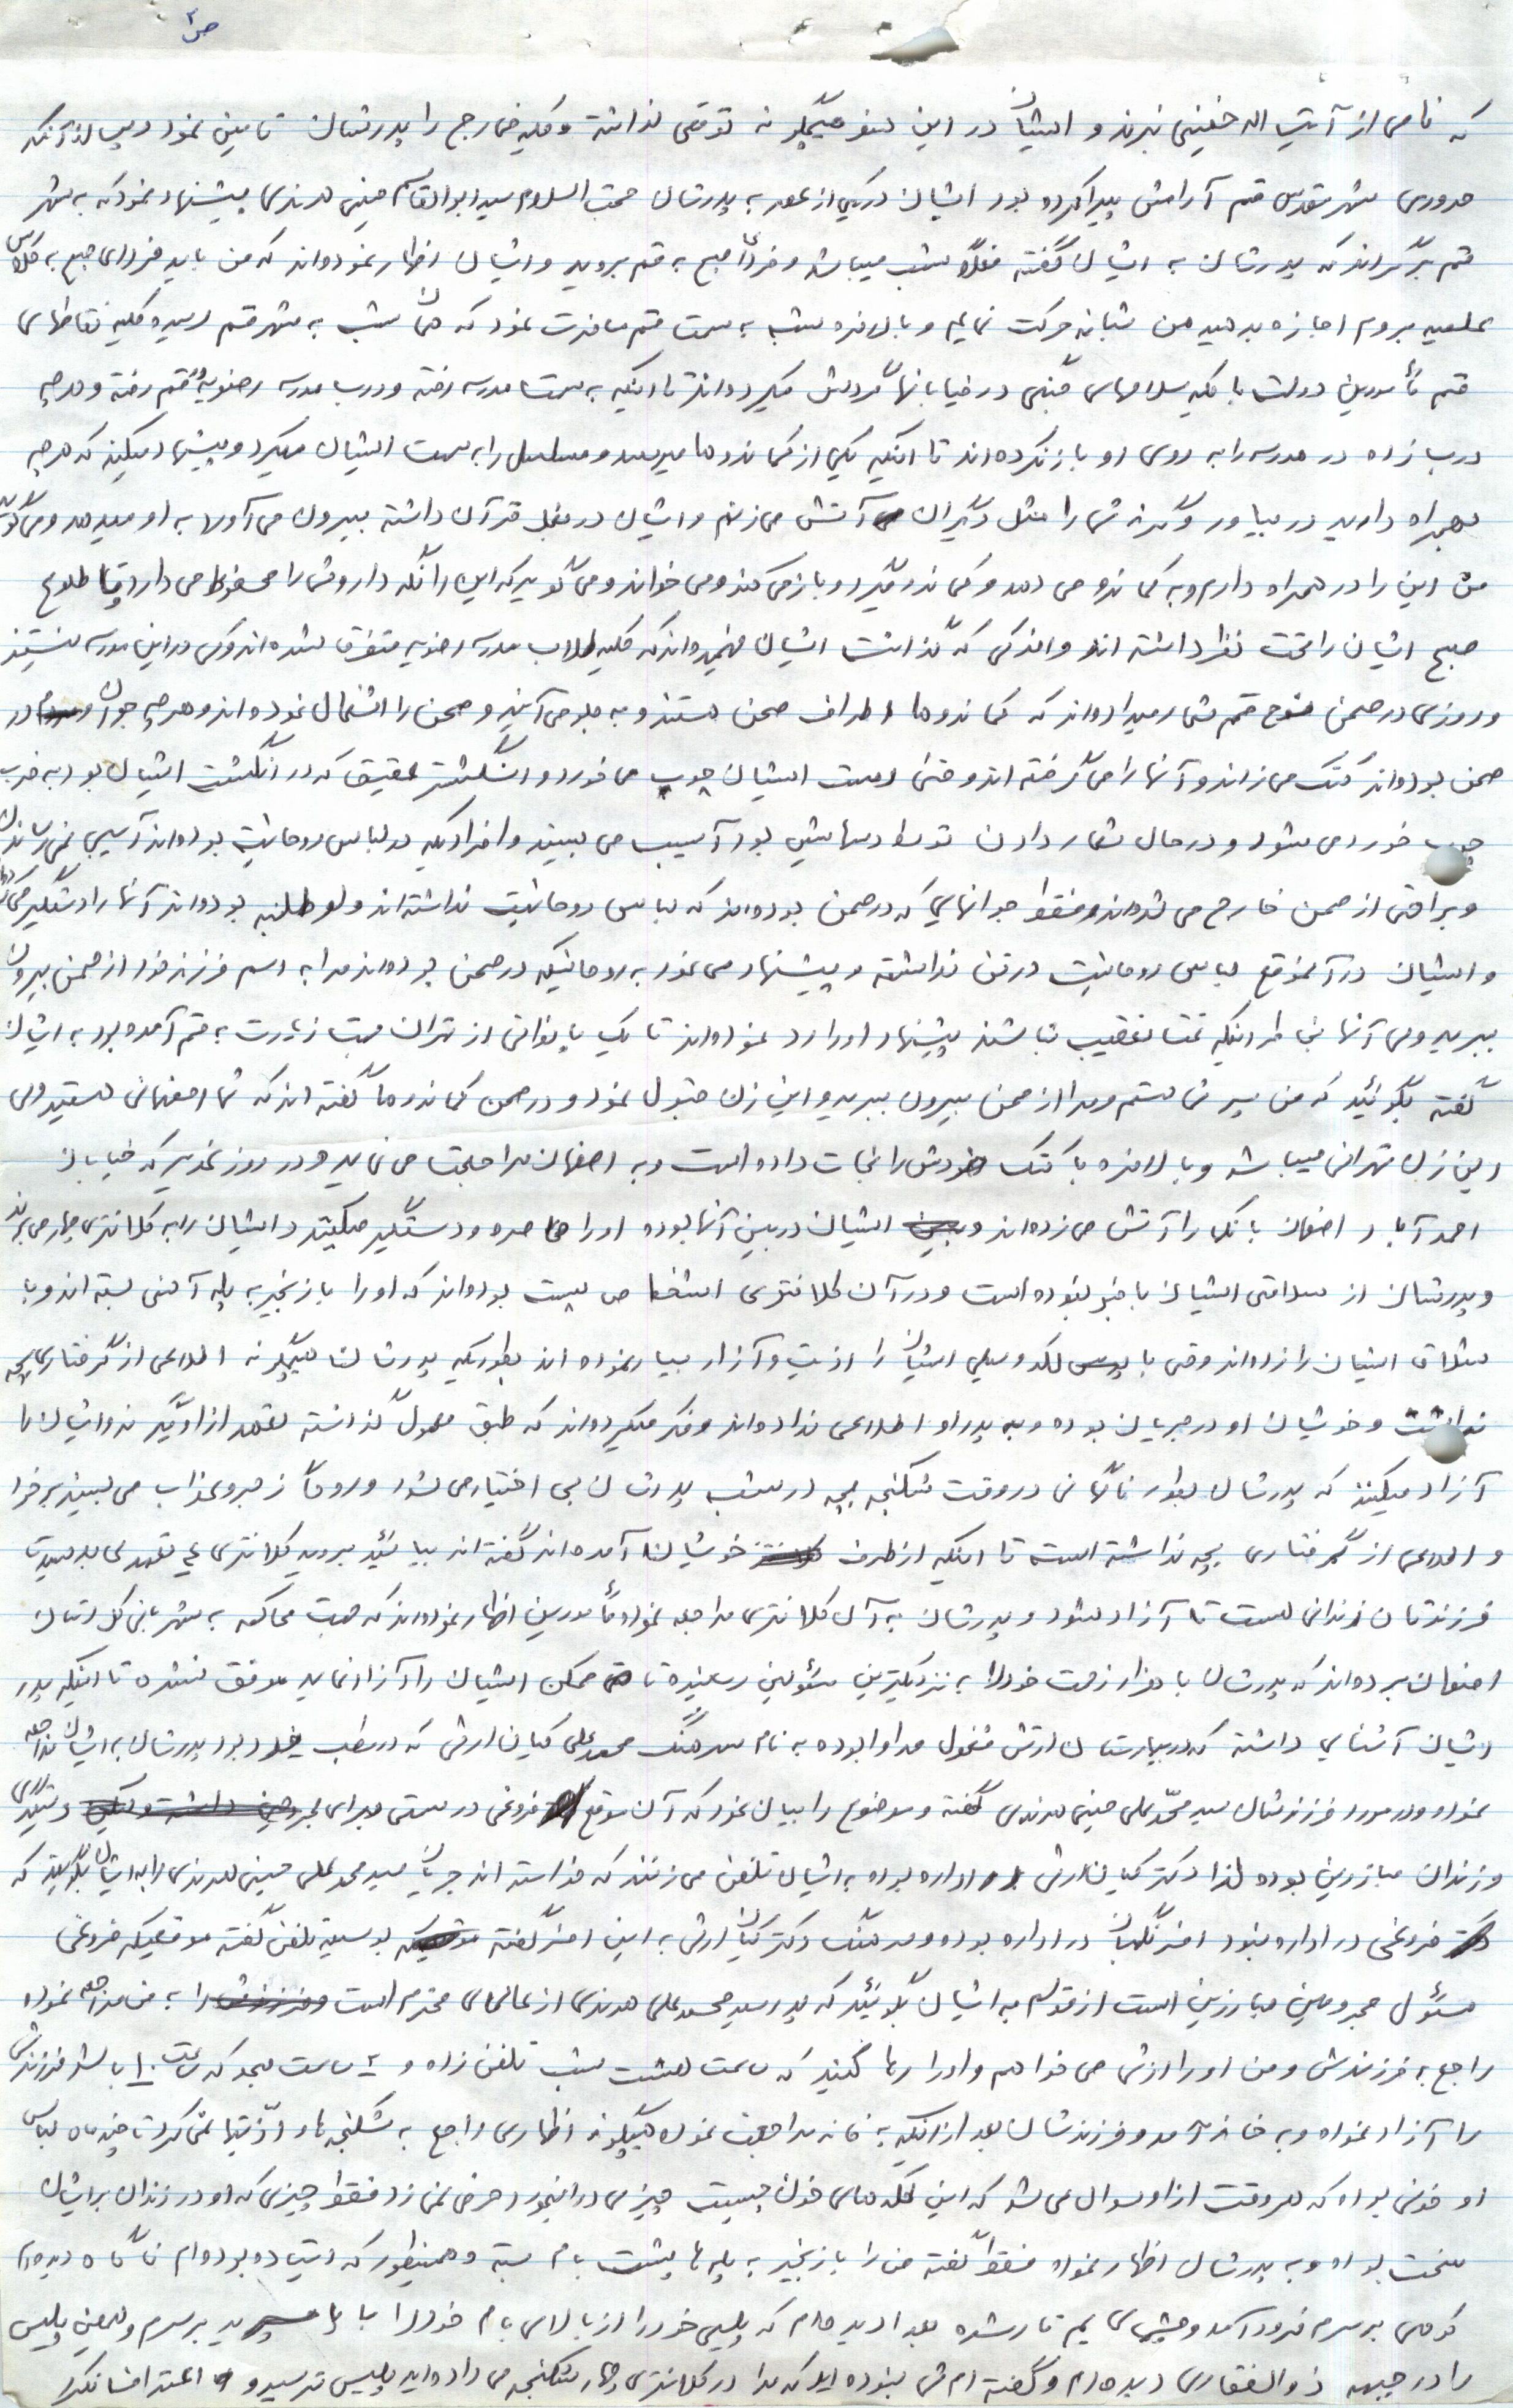 ص۳
که نامی از آیت اله خمینی نبرند و ایشان در این سفر هیچگونه توقفی نداشته و کلیه مخارج را پدرشان تامین نمود و پس از آنکه
مدودی شهر مقدس قم آرامش پیدا کرده بود ایشان در یکی از عصر به پدرشان حجت السلام سید ابوالقاسم حسینی هرندی پیشنهاد نمود که به شهر
قم برگرداند که پدرشان به ایشان گفته فعلاً شب میباشد و فردا صبح به قم بروید و ایشان اظهار نموده‌اند که من باید فردای صبح به کلاس
علمیه بروم اجازه بدهید من شبانه حرکت نمایم و بالاخره شب به سمت قم مسافرت نمود که همان شب به شهر قم رسیده کلیه نقاطهای
قم مأمورین دولت با کلیه سلاحهای جنگی در خیابانها گردش میکرده‌اند تا اینکه به سمت مدرسه رفته و درب مدرسه رضویه قم رفته و هرچه
درب زده در مدرسه را به روی او باز نکرده‌اند تا اینکه یکی از کماندوها میرسد و مسلسل را به سمت ایشان میگیرد و پیشنهاد میکند که هرچه
همراه دارید در بیاور وگرنه شما را مثل دگیران آتش می‌زنم و ایشان در بغل قرآن داشته بیرون می‌آورد به او میدهد و می‌گوید
من این را در همراه دارم و به کماندو می دهد و کماندو میگیرد و باز می کند و می خواند و می گوید که این را نگه دار و شما را محفوظ می دارد تا طلوع
صبح ایشان را تحت نظر داشته اند و اندکی که گذاشت ایشان فهمیده‌اند که کلیه طلاب مدرسه رضویه متفرق شده‌اند و کسی در این مدرسه نیستند
و روزی در صحن قم شعار میداده‌اند که کماندوها اطراف صحن هستند و به جلو می آیند و صحن را اشغال نموده‌اند و هرچه جوان در
صحن بوده‌اند کتک می‌زدند و آنها را می گرفته اند و حتی دست ایشان چوب می خورد و انگشتر عقیق که در انگشت ایشان بود به ضرب
چوب خورد می شود و در حال شعار دادن بود آسیب می بیند و افرادیکه در لباس روحانیت بوده‌اند آسیبی نمی رساندند
و براحتی از صحن خارج می شده‌اند و فقط جوانهایی که در صحن بوده‌اند که لباس روحانیت نداشته‌اند ولو طلبه بوده‌اند آنها را دستگیر می‌کردند
و ایشان در آنموقع لباس روحانیت در تن نداشته و پیشنهاد می نمود به روحانیکه در صحن بوده‌اند مرا به اسم فرزند خود از صحن بیرون
ببرید ولی آنها بخاطر اینکه تحت تعقیب نباشند پیشنهاد او را رد نموده‌اند تا یک بانوانی از تهران جهت زیارت به قم آمده بود به ایشان
گفته بگوئید که من پسر شما هستم و مرا از صحن بیرون ببرید و این زن قبول نمود و در صحن کماندوها گفته اند که شما اصفهانی هستید ولی
این زن تهرانی میباشد و بالاخره با کتک خودش را نجات داده است و به اصفهان مراجعت می نماید و در روز غدیر که خیابان
احمدآباد اصفهان بانکها را آتش می‌زده‌اند و ایشان در بین آنها بوده او را محاصره و دستگیر میکنند و ایشان را به کلانتری چهار می برند
و پدرشان از سلامتی ایشان باخبر نبوده است و در آن کلانتری اشخاص پست بوده‌اند که او را با زنجیر به پله آهنی بسته اند و با
شلاق ایشان را زده‌اند و حتی با لگد و سیلی ایشان را اذیت و آزار بسیار نموده اند بطوریکه پدرشان هیچگونه اطلاعی از گرفتاری بچه
نداشت و خویشان او در جریان بوده و به پدر او اطلاعی نداده‌اند و فکر میکرده‌اند که طبق معمول گذشته تعهد از او گیرند و ایشان را
آزاد میکنند که پدرشان بطور ناگهانی در وقت شکنجه بچه در شب پدرشان بی اختیار می شود و روحاً زجر و عذاب می بیند بر خود
و اطلاعی از گرفتاری بچه نداشته است تا اینکه از طرف خویشان آمده اند گفته اند بیائید بروید کلانتری تعهدی بدهید
فرزندتان زندانی است تا آزاد شود و پدرشان به آن کلانتری مراجعه نموده مأمورین اظهار نموده‌اند که جهت محاکمه به شهربانی کل استان
اصفهان برده‌اند که پدرشان با هزار زحمت خود را به نزدیکترین مسئولین رسانیده تا ممکن ایشان را آزاد نماید موفق نشده تا اینکه پدر
ایشان آشنایی داشته که در بیمارستان ارتش مشغول مداوا بوده به نام سرهنگ محمدعلی کیان ارثی که در مطب خود بود پدرشان به ایشان مراجعه
نموده و در مورد فرزندشان سید محمدعلی حسینی هرندی گفته و موضوع را بیان نمود که آن موقع فروغی در دستگیری
و زندان مبارزین بوده لذا دکتر کیان ارثی اداره بوده به ایشان تلفن می زنند که خواسته اند جریان سید محمدعلی حسینی هرندی را به ایشان بگویند که
فروغی در اداره نبود افسر نگهبان در اداره بوده و سرهنگ دکتر کیان ارثی به این افسر گفته بوسیله تلفن گفته موقعیکه فروغی
مسئول مجرومین مبارزین است از قولم به ایشان بگوئید که پدر سید محمدعلی هرندی از عالمهای محترم است را به من مراجعه نموده
راجع به فرزندش و من او را از شما می خواهم و او را رها کنید که ساعت هشت شب تلفن زده و ۲ ساعت بعد که ساعت ۱۰ باشد فرزندش
را آزاد نموده و به خانه آمد و فرزندشان بعد از اینکه به خانه مراجعت نمود هیچگونه اظهاری راجع به شکنجه ها و اذیتها نمی کرد تا چند ماه لباس
او خونی بوده که هر وقت از او سوال می شد که این لکه های خون چیست چیزی در اینمورد حرفی نمی زد فقط چیزی که او در زندان برایشان
سخت بوده و به پدرشان اظهار نموده فقط گفته من را با زنجیر به پله ها پشت بام بسته و همینطور که ایستاده بوده‌ام ناگاه دیده‌ام
کوهی بر سرم فرود آمد و چشمهایم تار شده بعداً دیده‌ام که پلیس خود را از بالای بام خود را با پا پرید بر سرم و همین پلیس
را در جبهه ذوالفقاری دیده‌ام و گفته ام شما نبوده اید که مرا در کلانتری چهار شکنجه می داده اید پلیس ترسید و اعتراف نکرد